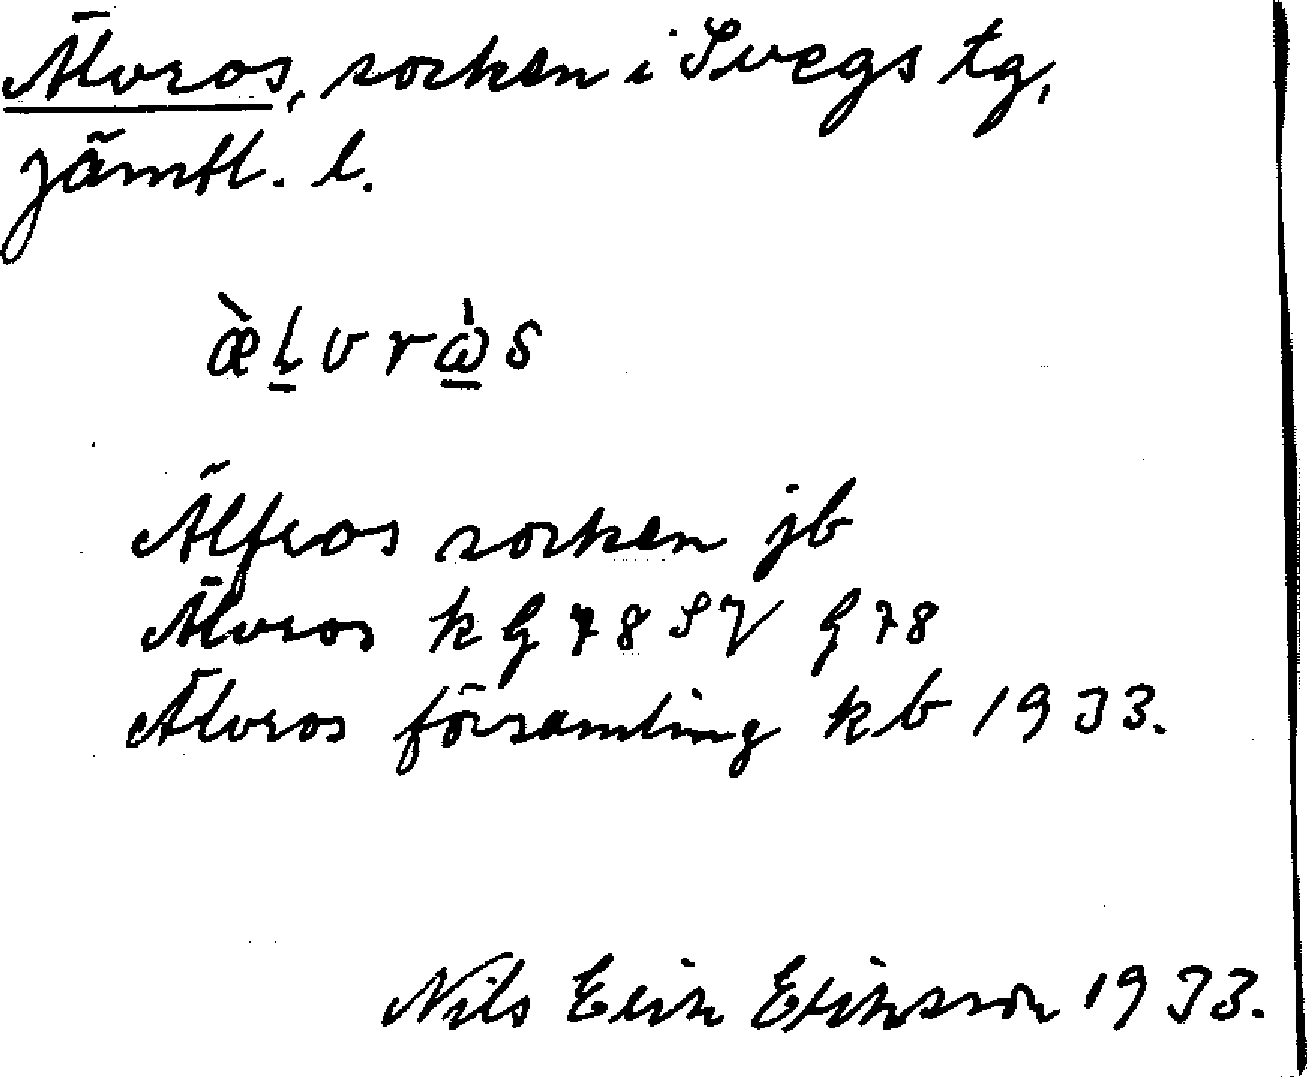 Älvros, socken i Svegs tg,
jämtl. l.
æ̀ḻvrὼ̱s
Älfros socken jb
Älvros k G 78 SV G 78
Älvros församling kb 1933.
Nils Erik Eriksson 1933.